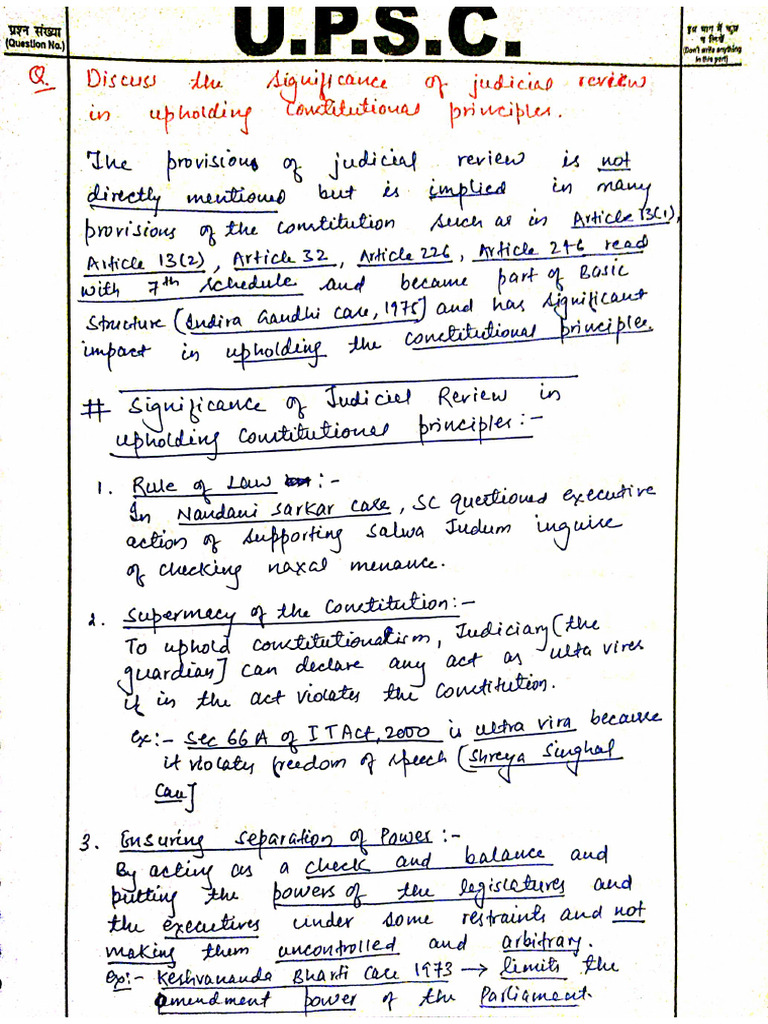 प्रश्न संख्या
(Question No.)
U.P.S.C.
इस भाग में कुछ
न लिखें
(Don't write anything
in this part)
Q. Discuss the significance of judicial review
in upholding constitutional principles.
The provisions of judicial review is not
directly mentioned but is implied in many
provisions of the constitution such as in Article 13(1),
Article 13(2), Article 32, Article 226, Article 246 read
with 7th schedule and became part of Basic
Structure (Indira Gandhi Case, 1975] and has significant
impact in upholding the constitutional principles.
# Significance of Judicial Review in
upholding constitutional principles:-
1. Rule of Law :-
In Nandani Sarkar case, SC questioned executive
action of supporting Salwa Judum inguise
of checking naxal menance.
2. Supermacy of the Constitution:-
To uphold constitutionalism, Judiciary (the
guardian] can declare any act as ulta vires
if in the act violates the constitution.
ex:- Sec 66A of IT Act, 2000 is ultra vira because
it violates freedom of speech (Shreya Singhal
Case]
3. Ensuring separation of Power:-
By acting as a check and balance and
putting the powers of the legislatures and
the executives under some restraints and not
making them uncontrolled and arbitrary.
ex:- Keshvananda Bharti Case 1973 → limits the
amendment power of the Parliament.